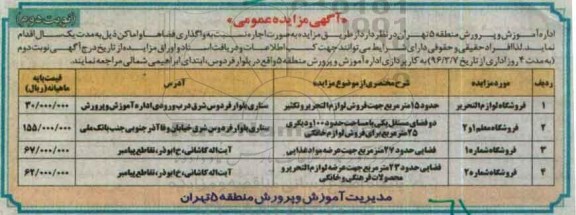 «آگهی مزایده عمومی»
(نوبت دوم)
اداره آموزش و پرورش منطقه ۵ تهران در نظر دارد از طریق مزایده به صورت اجاره نسبت به واگذاری فضاها و اماکن ذیل به مدت یکسال اقدام
نماید. لذا افراد حقیقی و حقوقی دارای شرایط می توانند جهت کسب اطلاعات و دریافت اسناد و اوراق مزایده از تاریخ درج آگهی نوبت دوم
(به مدت ۴ روز اداری از تاریخ ۹۶/۲/۷) به کارپردازی اداره آموزش و پرورش منطقه ۵ واقع در بلوار فردوس، ابتدای ابراهیمی شمالی مراجعه نمایند.
ردیف مورد مزایده شرح مختصری از موضوع مزایده آدرس قیمت پایه ماهیانه (ریال)
۱ فروشگاه لوازم التحریر حدود ۱۵ متر مربع جهت فروش لوازم التحریر و تکثیر ستاری بلوار فردوس شرق درب ورودی اداره آموزش و پرورش ۳۰/۰۰۰/۰۰۰
۲ فروشگاه معلم ۱ و ۲ دو فضای مستقل یکی با مساحت حدود ۱۰۰ و دیگری ۲۵ متر مربع برای فروش لوازم خانگی ستاری بلوار فردوس شرق خیابان وفا آذر جنوبی جنب بانک ملی ۱۵۵/۰۰۰/۰۰۰
۳ فروشگاه شماره ۱ فضایی حدود ۲۷ متر مربع جهت عرضه مواد غذایی آیت اله کاشانی، خ ابوذر، تقاطع پیامبر ۶۷/۰۰۰/۰۰۰
۴ فروشگاه شماره ۲ فضایی حدود ۲۳ متر مربع جهت عرضه لوازم التحریر و محصولات فرهنگی و خانگی آیت اله کاشانی، خ ابوذر، تقاطع پیامبر ۶۲/۰۰۰/۰۰۰
مدیریت آموزش و پرورش منطقه ۵ تهران